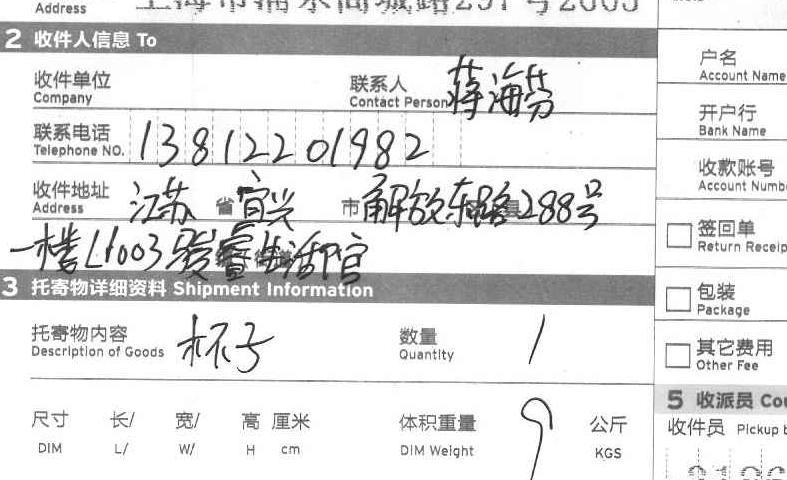 Address 上海市浦东商城路297号2005
2 收件人信息 To
收件单位 Company 联系人 Contact Person 蒋海芬
联系电话 Telephone NO. 13812201982
收件地址 Address 江苏 省 宜兴 市 解放东路288号
一楼L1003 生活馆
3 托寄物详细资料 Shipment Information
托寄物内容 Description of Goods 杯子 数量 Quantity 1
尺寸 长/ 宽/ 高 厘米 体积重量 9 公斤
DIM L/ W/ H cm DIM Weight KGS
户名
Account Name
开户行
Bank Name
收款账号
Account Numbe
签回单
Return Receip
包装
Package
其它费用
Other Fee
5 收派员 Cou
收件员 Pickup b